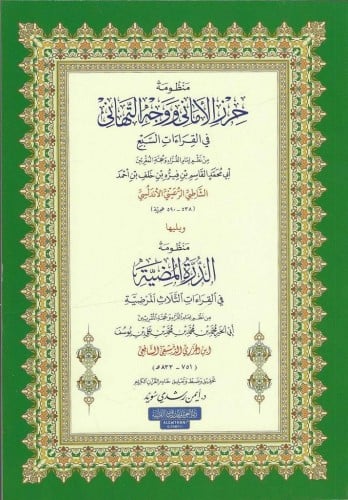 منظومة
حرز الأماني ووجه التهاني
في القراءات السبع
من نظم إمام القراء وحجة المقرئين
أبي محمد القاسم بن فيرّه بن خلف بن أحمد
الشاطبي الرعيني الأندلسي
(٥٣٨ - ٥٩٠ هجرية)
ويليها
منظومة
الدرة المضية
في القراءات الثلاث المرضية
من نظم إمام القراء وحجة المقرئين
أبي الخير محمد بن محمد بن محمد بن علي بن يوسف
ابن الجزري الدمشقي الشافعي
(٧٥١ - ٨٣٣ هـ)
تحقيق وضبط وتعليق خادم القرآن الكريم
د. أيمن رشدي سويد